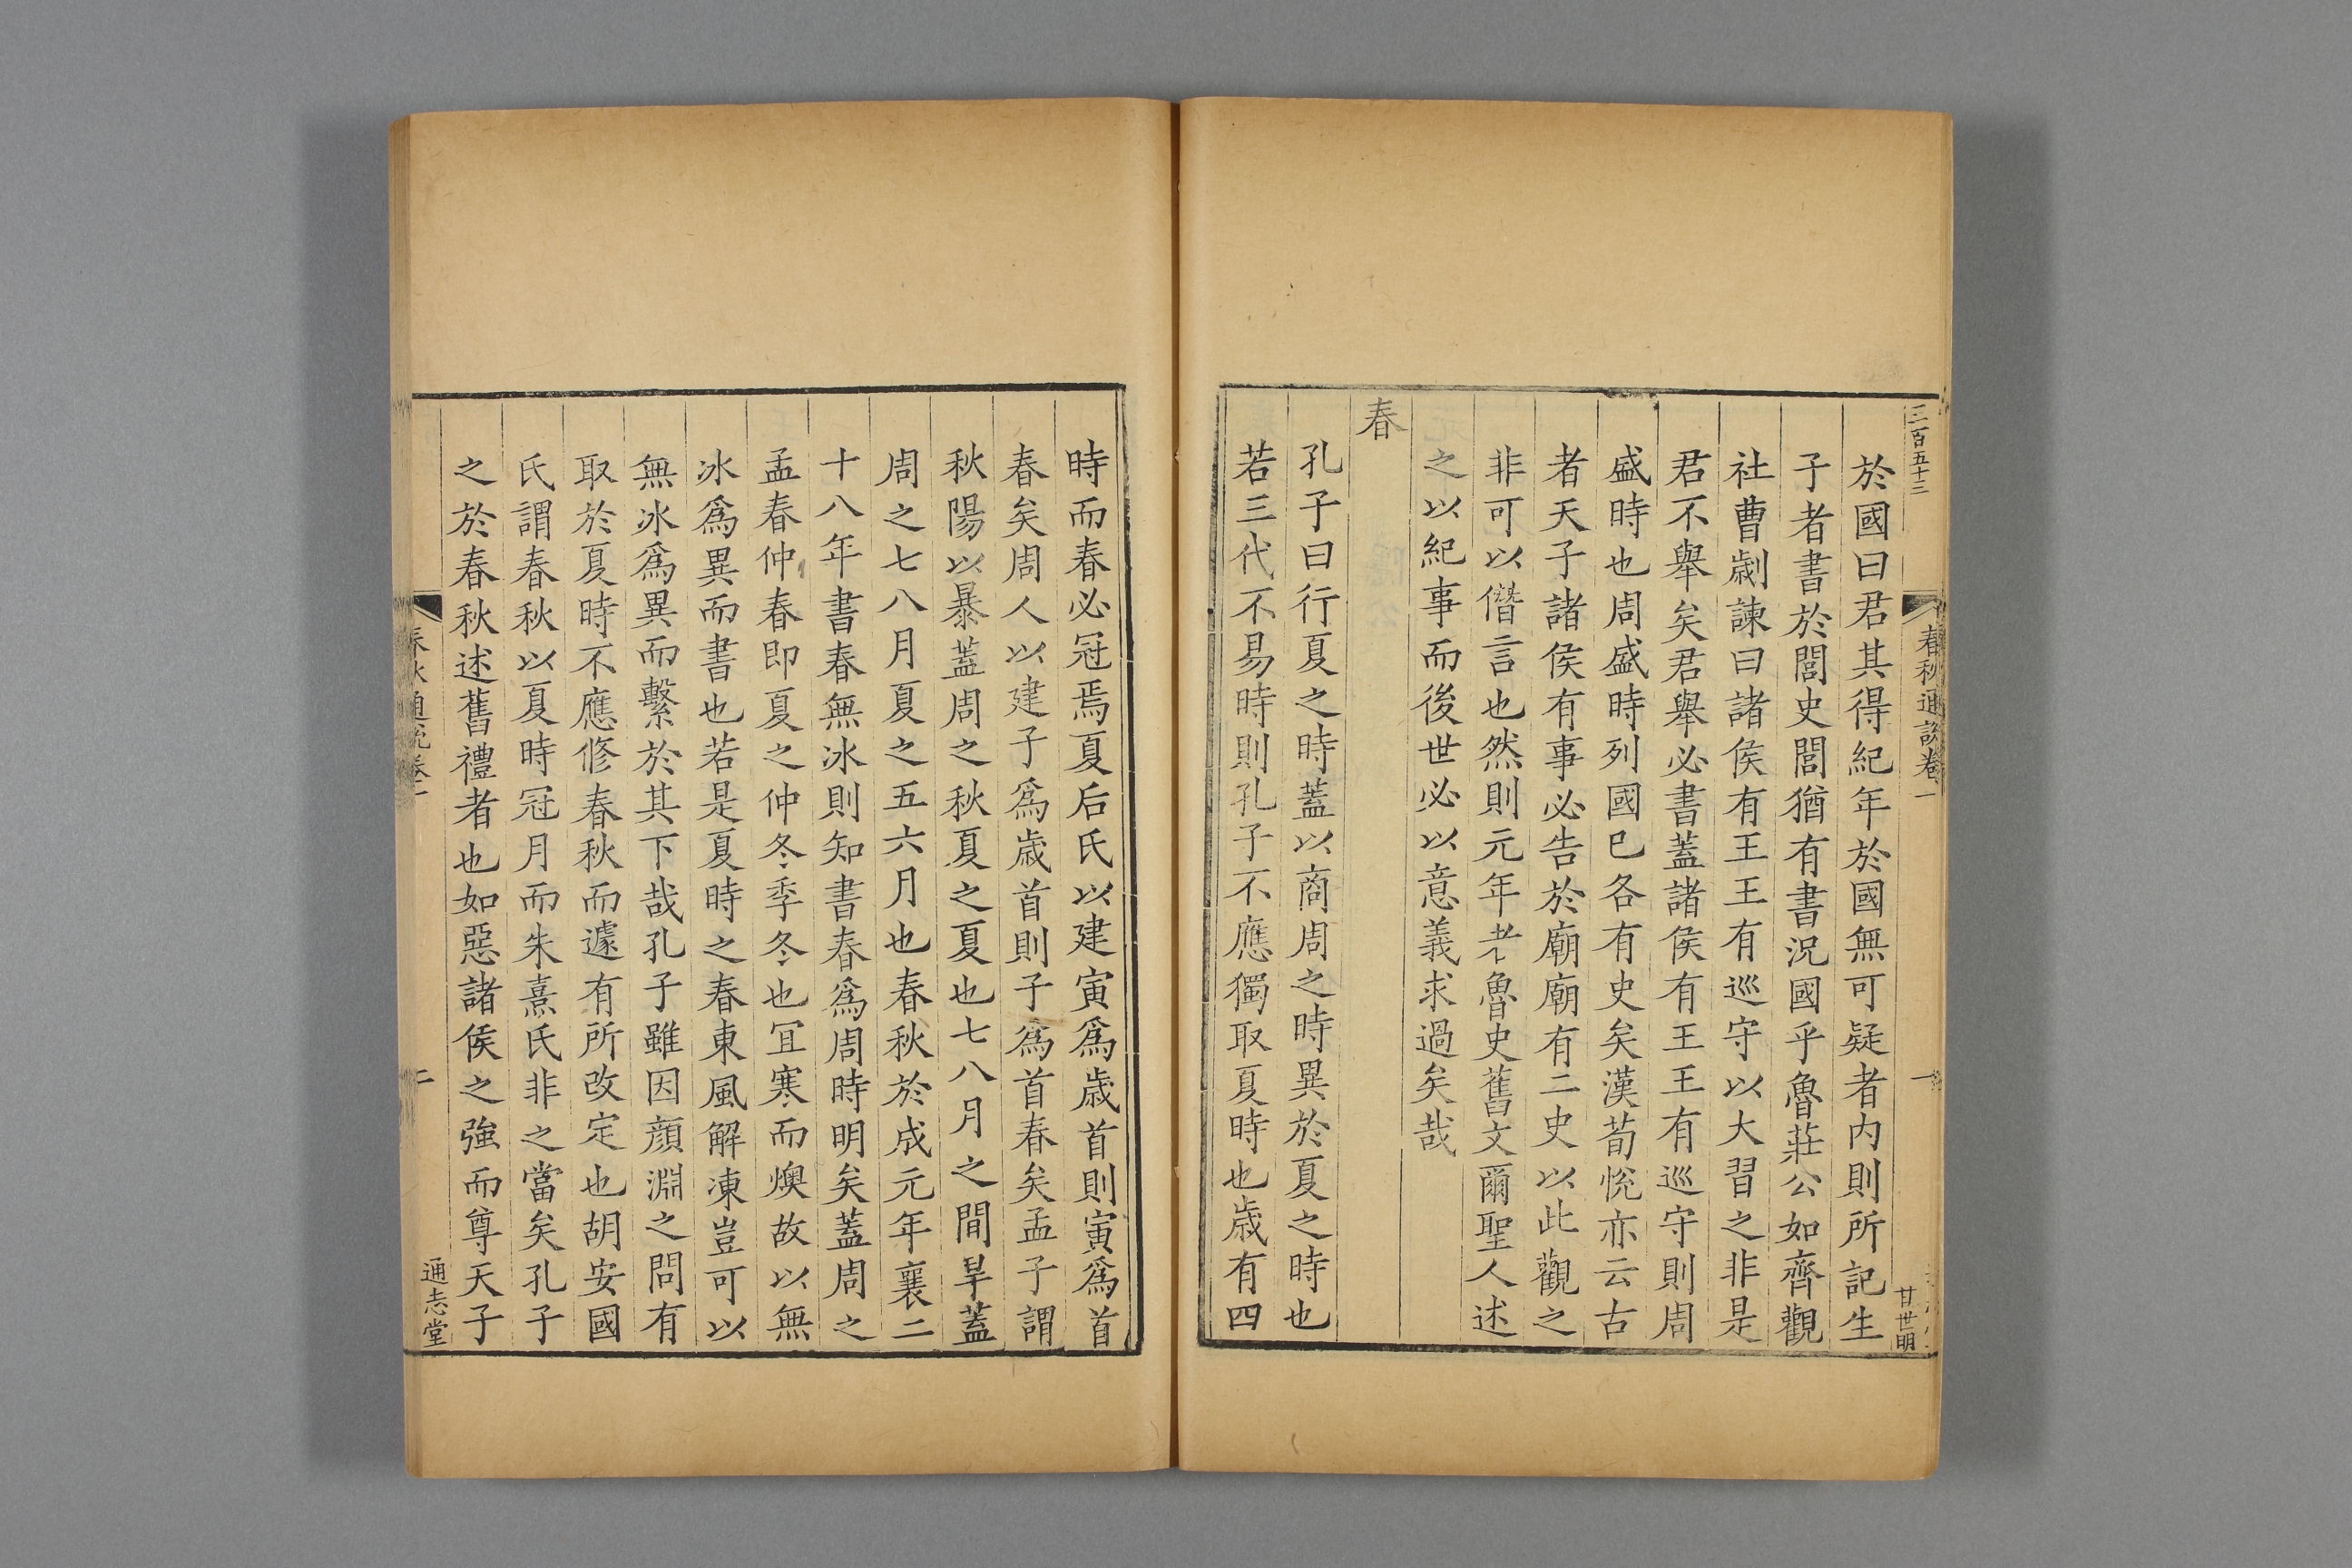 三百五十三
春秋通說卷一
一
甘世明
於國曰君其得紀年於國無可疑者内則所記生
子者書於閭史閭猶有書況國乎魯莊公如齊觀
社曹劌諫曰諸侯有王王有巡守以大習之非是
君不舉矣君舉必書蓋諸侯有王王有巡守則周
盛時也周盛時列國巳各有史矣漢荀悅亦云古
者天子諸侯有事必告於廟廟有二史以此觀之
非可以僭言也然則元年者魯史舊文爾聖人述
之以紀事而後世必以意義求過矣哉
春
孔子曰行夏之時蓋以商周之時異於夏之時也
若三代不易時則孔子不應獨取夏時也歲有四
時而春必冠焉夏后氏以建寅爲歲首則寅爲首
春矣周人以建子爲歲首則子爲首春矣孟子謂
秋陽以暴蓋周之秋夏之夏也七八月之間旱蓋
周之七八月夏之五六月也春秋於成元年襄二
十八年書春無冰則知書春爲周時明矣蓋周之
孟春仲春即夏之仲冬季冬也冝寒而燠故以無
冰爲異而書也若是夏時之春東風解凍豈可以
無冰爲異而繫於其下哉孔子雖因顔淵之問有
取於夏時不應修春秋而遽有所改定也胡安國
氏謂春秋以夏時冠月而朱熹氏非之當矣孔子
之於春秋述舊禮者也如惡諸侯之強而尊天子
春秋通說卷一
二
通志堂